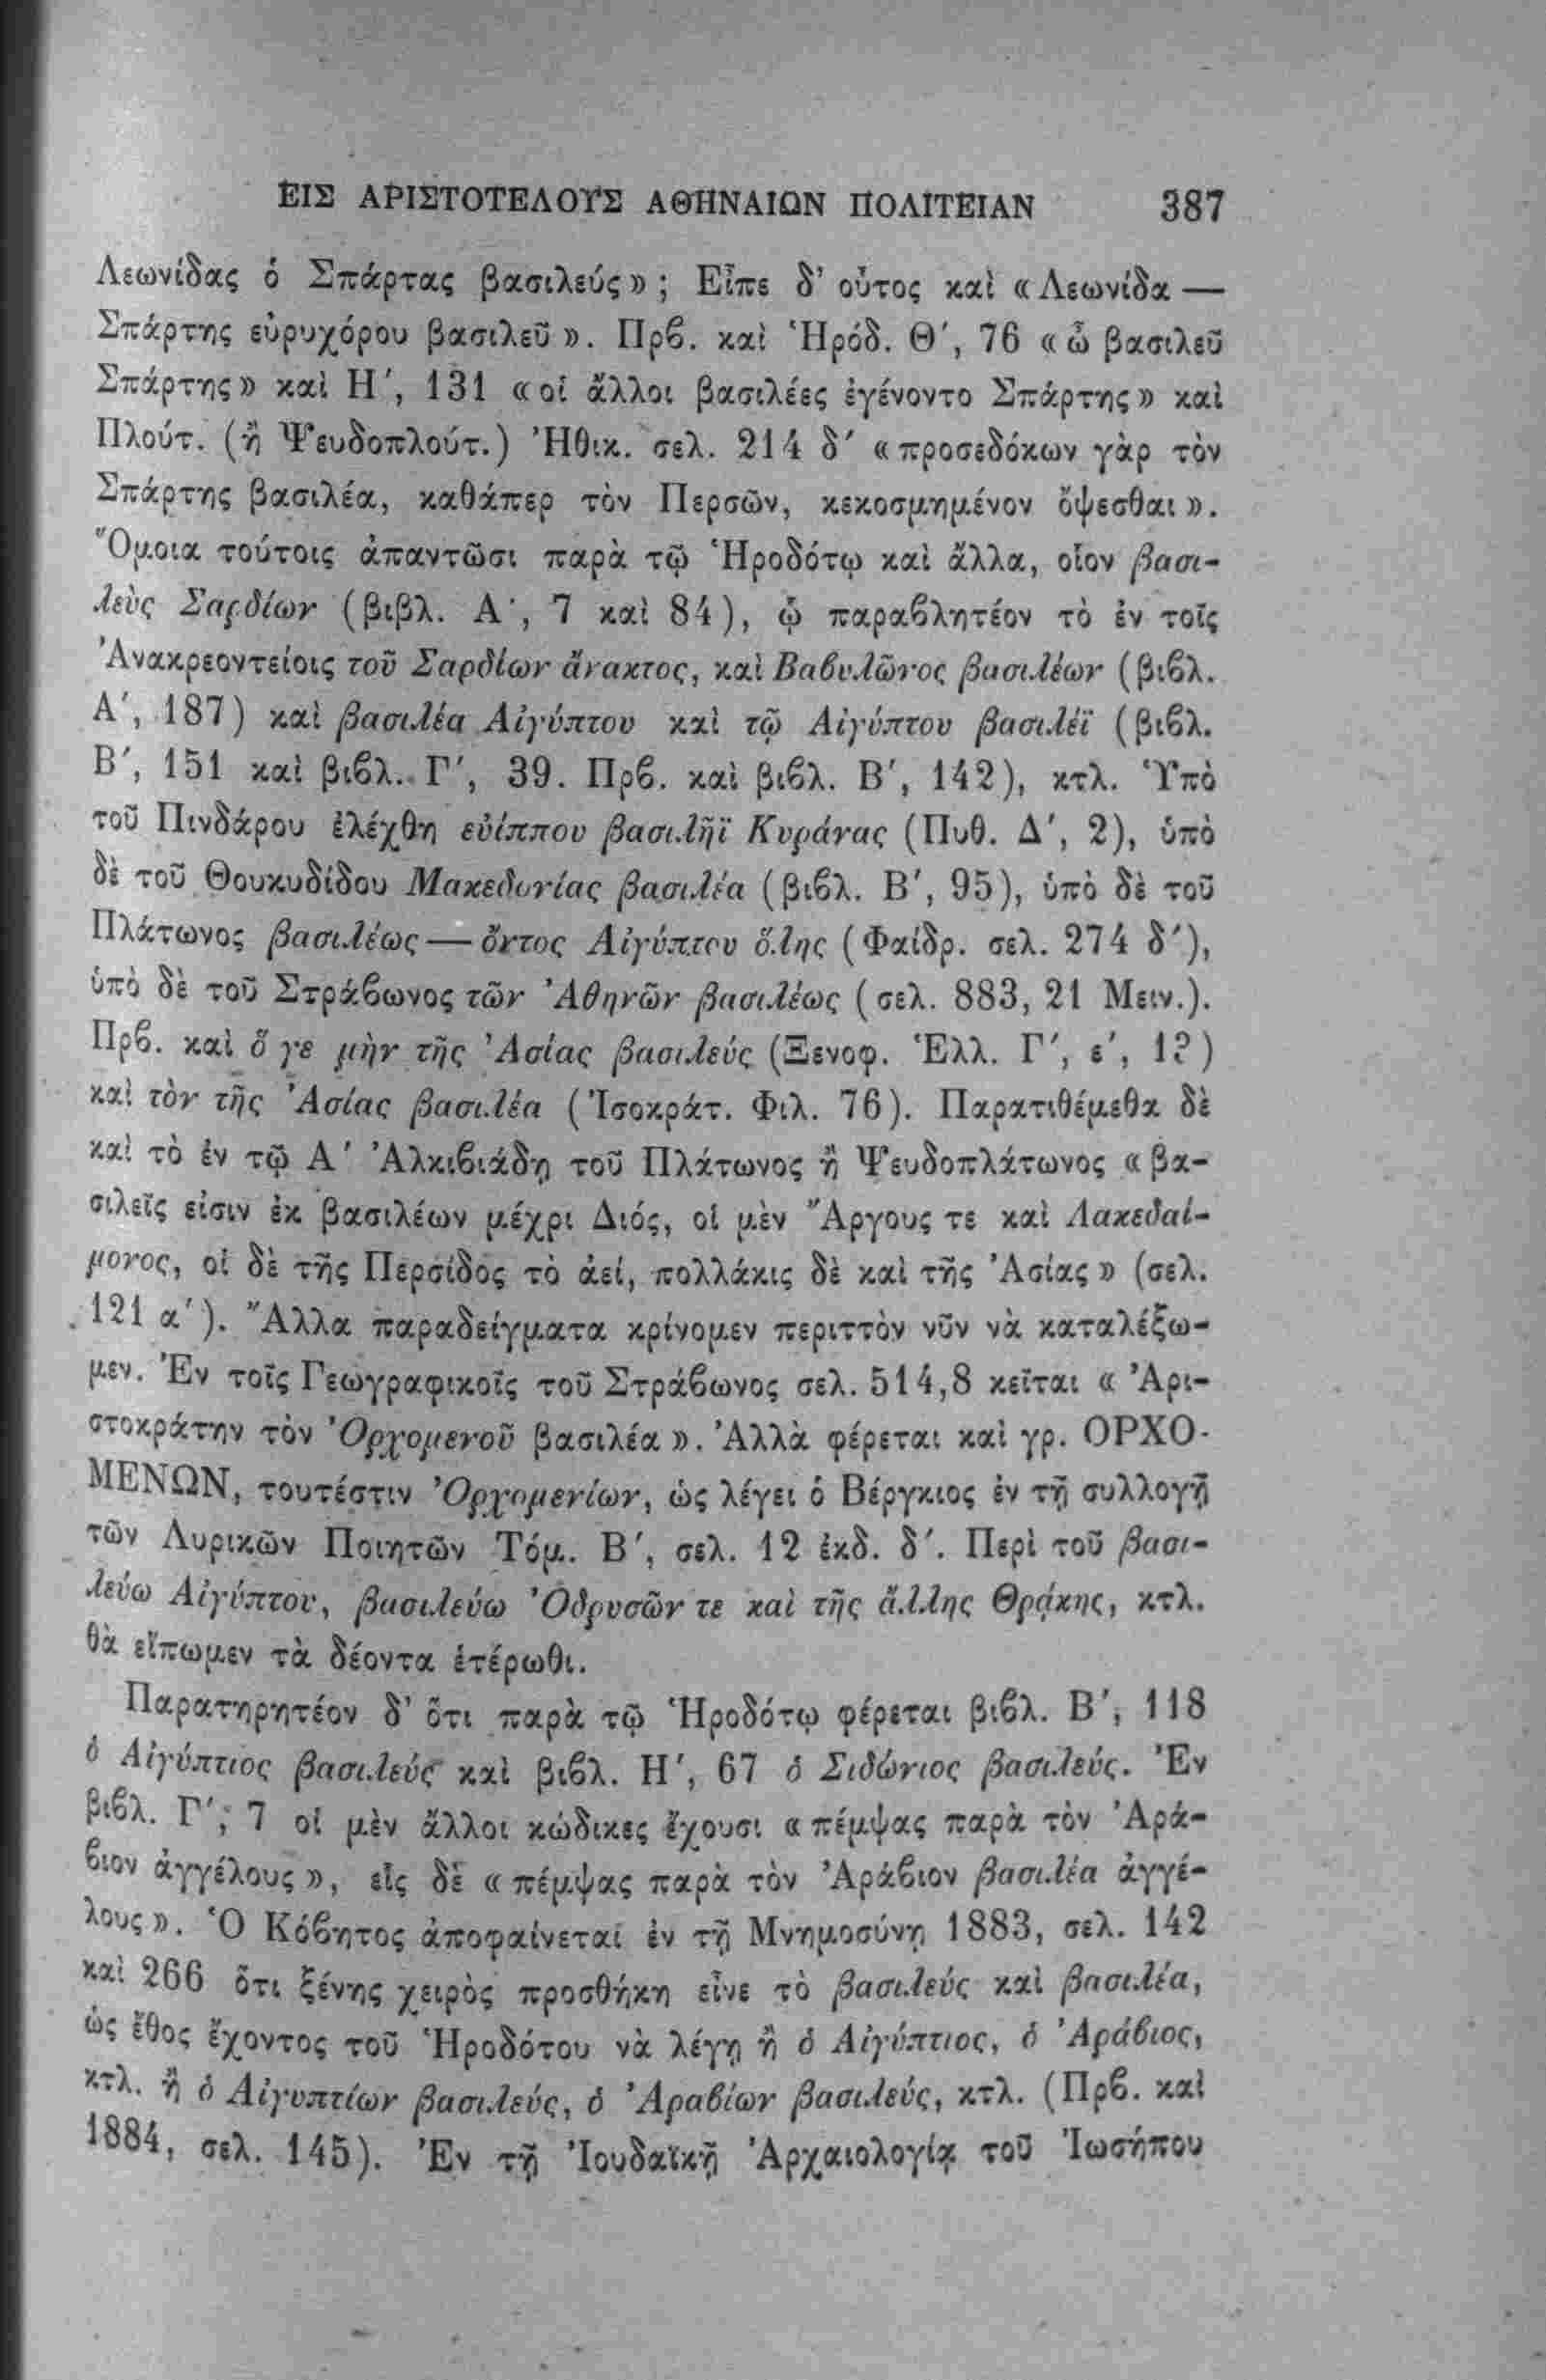 ΕΙΣ ΑΡΙΣΤΟΤΕΛΟΥΣ ΑΘΗΝΑΙΩΝ ΠΟΛΙΤΕΙΑΝ 387
Λεωνίδας ὁ Σπάρτας βασιλεύς» ; Εἶπε δ' οὗτος καὶ «Λεωνίδα —
Σπάρτης εὐρυχόρου βασιλεῦ». Πρβ. καὶ Ἡρόδ. Θ', 76 «ὦ βασιλεῦ
Σπάρτης» καὶ Η', 131 «οἱ ἄλλοι βασιλέες ἐγένοντο Σπάρτης» καὶ
Πλούτ. (ἢ Ψευδοπλούτ.) Ἠθικ. σελ. 214 δ' «προσεδόκων γὰρ τὸν
Σπάρτης βασιλέα, καθάπερ τὸν Περσῶν, κεκοσμημένον ὄψεσθαι».
Ὅμοια τούτοις ἀπαντῶσι παρὰ τῷ Ἡροδότῳ καὶ ἄλλα, οἷον βασι-
λεὺς Σαρδίων (βιβλ. Α', 7 καὶ 84), ᾧ παραβλητέον τὸ ἐν τοῖς
Ἀνακρεοντείοις τοῦ Σαρδίων ἄνακτος, καὶ Βαβυλῶνος βασιλέων (βιβλ.
Α', 187) καὶ βασιλέα Αἰγύπτου καὶ τῷ Αἰγύπτου βασιλέϊ (βιβλ.
Β', 151 καὶ βιβλ. Γ', 39. Πρβ. καὶ βιβλ. Β', 142), κτλ. Ὑπὸ
τοῦ Πινδάρου ἐλέχθη εὐίππου βασιλῆϊ Κυράνας (Πυθ. Δ', 2), ὑπὸ
δὲ τοῦ Θουκυδίδου Μακεδονίας βασιλέα (βιβλ. Β', 95), ὑπὸ δὲ τοῦ
Πλάτωνος βασιλέως — ὄντος Αἰγύπτου ὅλης (Φαίδρ. σελ. 274 δ'),
ὑπὸ δὲ τοῦ Στράβωνος τῶν Ἀθηνῶν βασιλέως (σελ. 883, 21 Μειν.).
Πρβ. καὶ ὅ γε μὴν τῆς Ἀσίας βασιλεύς (Ξενοφ. Ἑλλ. Γ', ε', 13)
καὶ τὸν τῆς Ἀσίας βασιλέα (Ἰσοκράτ. Φιλ. 76). Παρατιθέμεθα δὲ
καὶ τὸ ἐν τῷ Α' Ἀλκιβιάδῃ τοῦ Πλάτωνος ἢ Ψευδοπλάτωνος «βα-
σιλεῖς εἰσιν ἐκ βασιλέων μέχρι Διός, οἱ μὲν Ἄργους τε καὶ Λακεδαί-
μονος, οἱ δὲ τῆς Περσίδος τὸ ἀεί, πολλάκις δὲ καὶ τῆς Ἀσίας» (σελ.
121 α'). Ἄλλα παραδείγματα κρίνομεν περιττὸν νῦν νὰ καταλέξω-
μεν. Ἐν τοῖς Γεωγραφικοῖς τοῦ Στράβωνος σελ. 514,8 κεῖται «Ἀρι-
στοκράτην τὸν Ὀρχομενοῦ βασιλέα». Ἀλλὰ φέρεται καὶ γρ. ΟΡΧΟ-
ΜΕΝΩΝ, τουτέστιν Ὀρχομενίων, ὡς λέγει ὁ Βέργκιος ἐν τῇ συλλογῇ
τῶν Λυρικῶν Ποιητῶν Τόμ. Β', σελ. 12 ἐκδ. δ'. Περὶ τοῦ βασι-
λεύω Αἰγύπτου, βασιλεύω Ὀδρυσῶν τε καὶ τῆς ἄλλης Θρᾴκης, κτλ.
θὰ εἴπωμεν τὰ δέοντα ἑτέρωθι.
Παρατηρητέον δ' ὅτι παρὰ τῷ Ἡροδότῳ φέρεται βιβλ. Β', 118
ὁ Αἰγύπτιος βασιλεύς καὶ βιβλ. Η', 67 ὁ Σιδώνιος βασιλεύς. Ἐν
βιβλ. Γ', 7 οἱ μὲν ἄλλοι κώδικες ἔχουσι «πέμψας παρὰ τὸν Ἀρά-
βιον ἀγγέλους», εἷς δὲ «πέμψας παρὰ τὸν Ἀράβιον βασιλέα ἀγγέ-
λους». Ὁ Κόβητος ἀποφαίνεται ἐν τῇ Μνημοσύνῃ 1883, σελ. 142
καὶ 266 ὅτι ξένης χειρὸς προσθήκη εἶνε τὸ βασιλεύς καὶ βασιλέα,
ὡς ἔθος ἔχοντος τοῦ Ἡροδότου νὰ λέγῃ ἢ ὁ Αἰγύπτιος, ὁ Ἀράβιος,
κτλ. ἢ ὁ Αἰγυπτίων βασιλεύς, ὁ Ἀραβίων βασιλεύς, κτλ. (Πρβ. καὶ
1884, σελ. 145). Ἐν τῇ Ἰουδαϊκῇ Ἀρχαιολογίᾳ τοῦ Ἰωσήπου